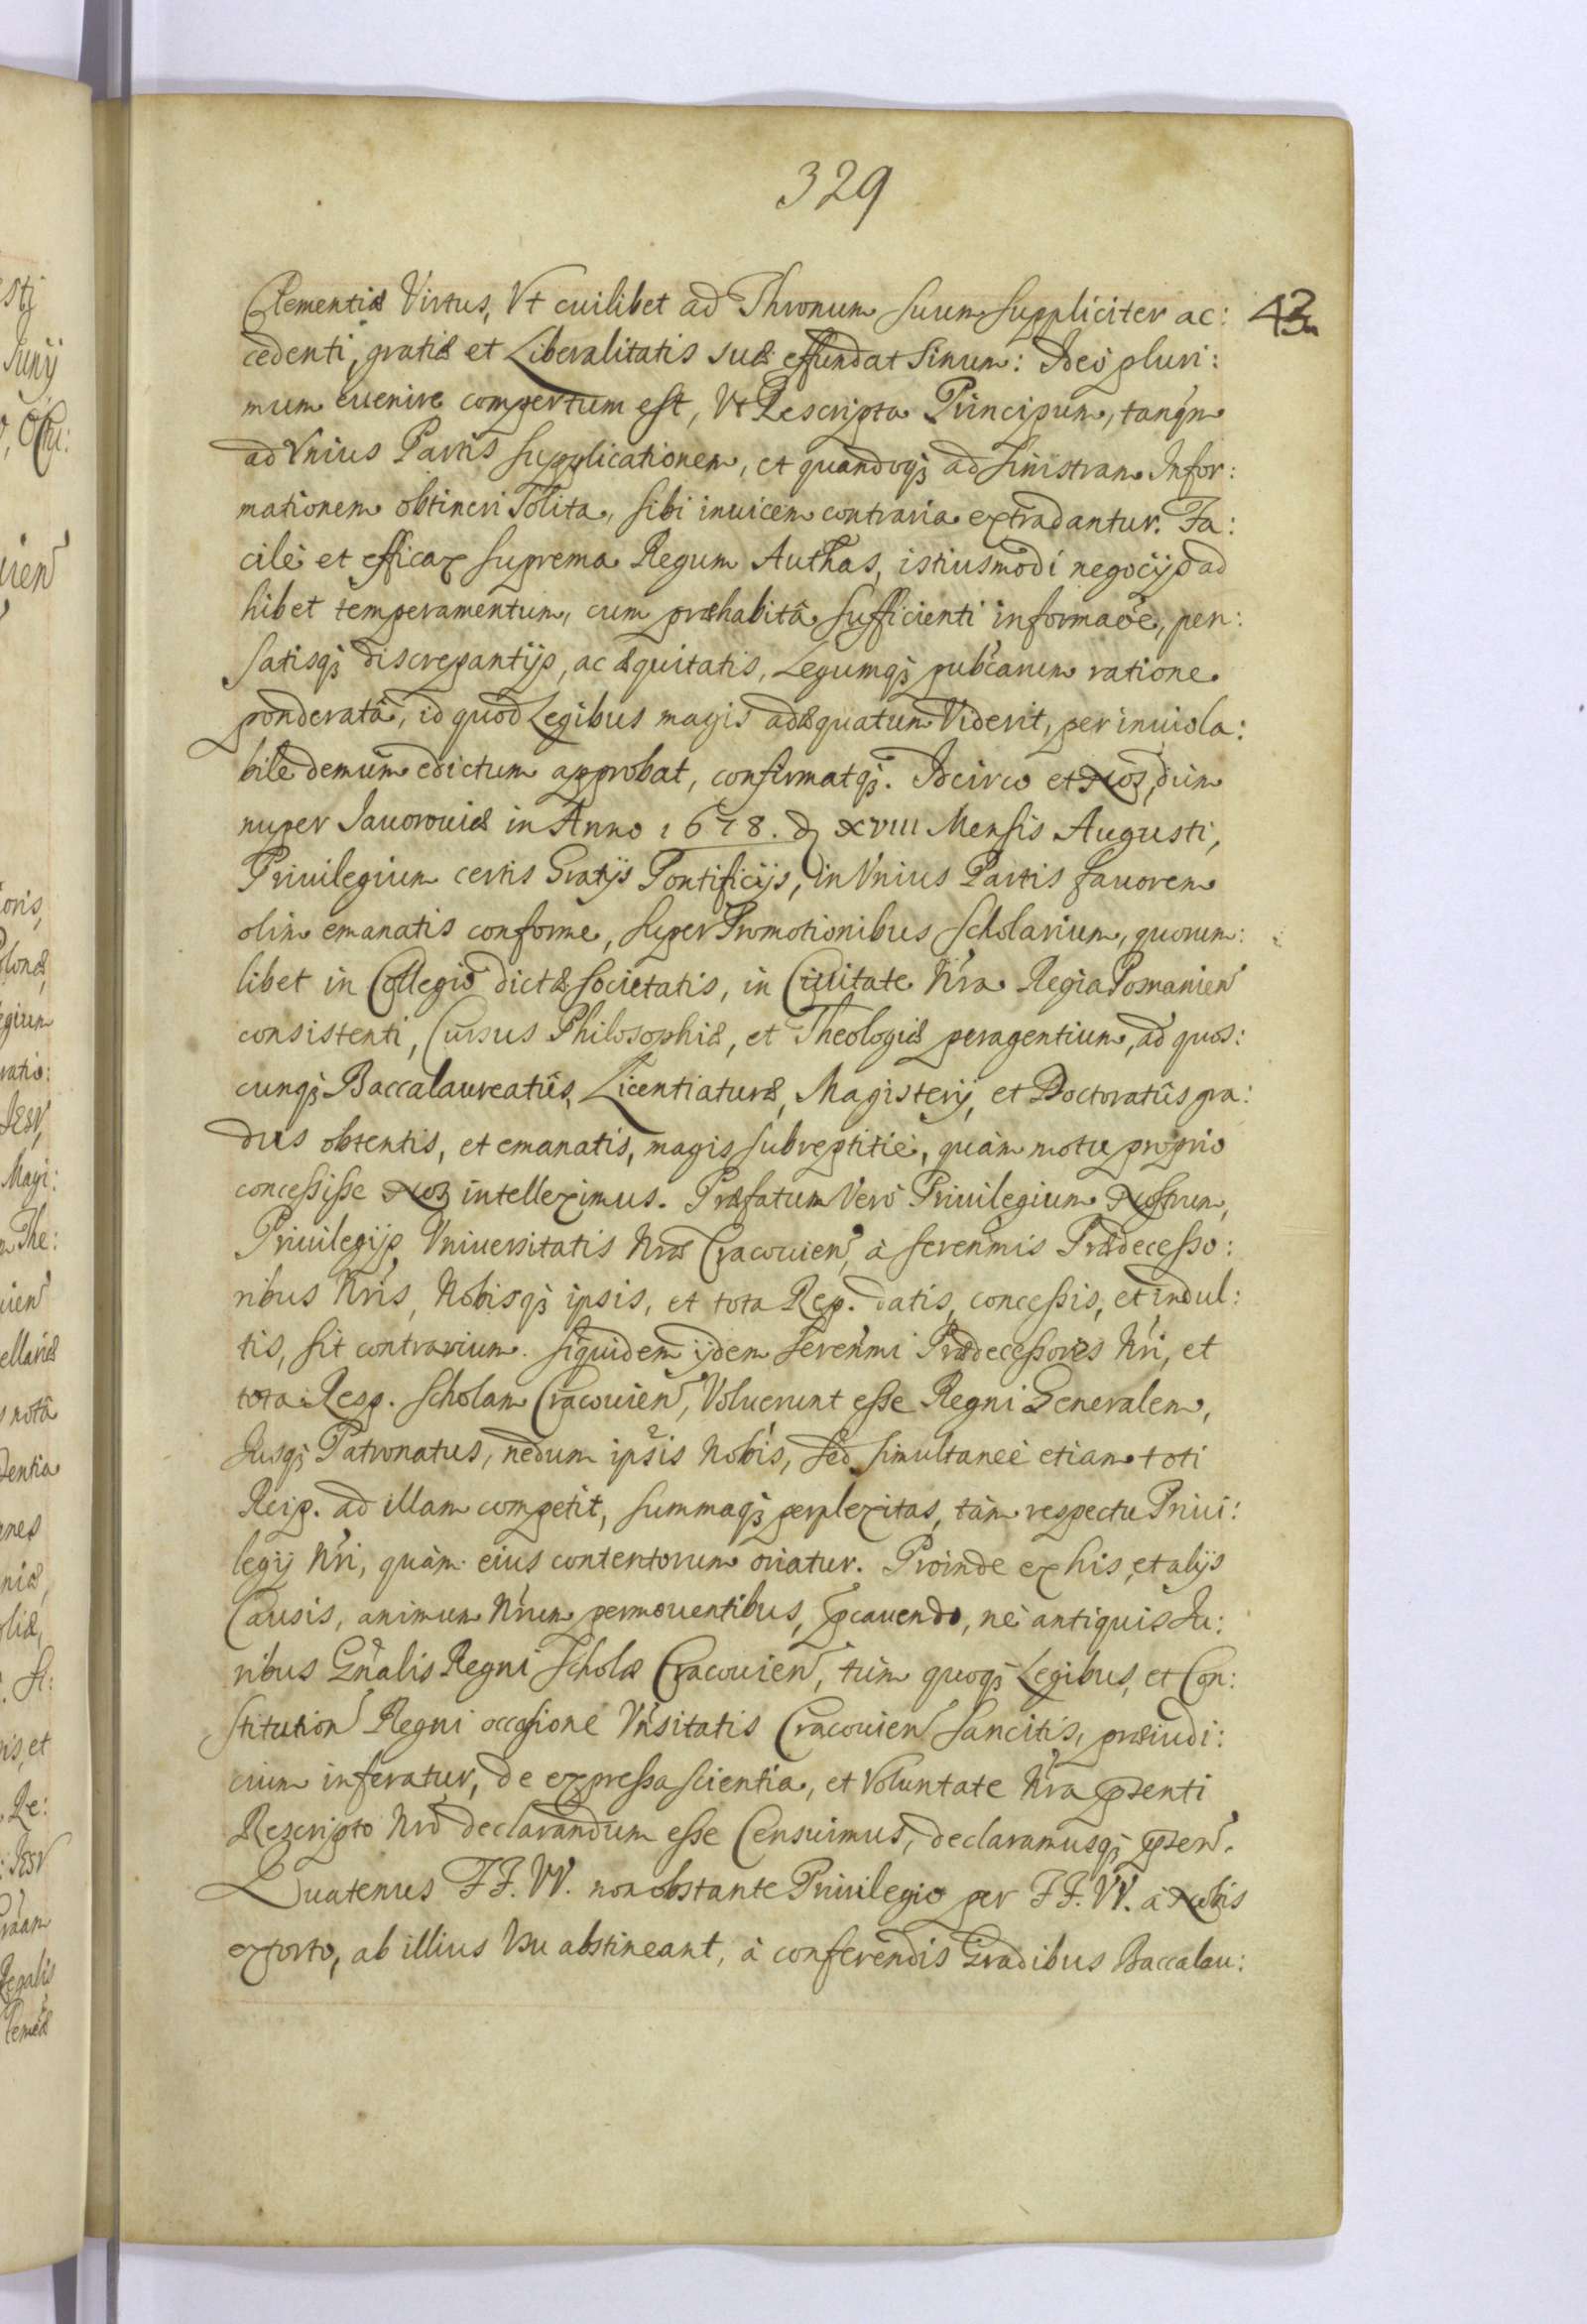 329
Clementiæ Virtus, Vt cuilibet ad Thronum suum suppliciter ac: 43
cedenti, gratiæ et Liberalitatis suæ effundat sinum: Adeò pluri:
mum euenire compertum est, Vt Rescripta Principum, tanq̃m
ad Vnius Partis supplicationem, et quandoq; ad sinistram Infor:
mationem obtineri solita, sibi inuicem contraria extradantur. Fa:
cilè et efficax suprema Regum Autħas, istiusmodi negocijs ad
hibet temperamentum, cum præhabitâ sufficienti informaõe, pen:
satisq; discrepantijs, ac æquitatis, Legumq; pubćarum ratione
ponderatâ, id quod Legibus magis adæquatum Viderit, per inuiola:
bile demùm edictum approbat, confirmatq;. Idcirco et Nos, dùm
nuper Jauorouiæ in Anno 1678. d XVIII Mensis Augusti,
Priuilegium certis Gratijs Pontificijs, in Vnius Partis fauorem
olim emanatis conforme, super Promotionibus Scholarium, quorum:
libet in Collegio dictæ Societatis, in Ciuitate Nr̃a Regia Posnanień
consistenti, Cursus Philosophiæ, et Theologiæ peragentium, ad quos:
cunq; Baccalaureatûs, Licentiaturæ, Magisterij, et Doctoratûs gra:
dus obtentis, et emanatis, magis subreptitiè, quàm motu proprio
concessisse Nos intelleximus. Præfatum Verò Priuilegium Nostrum,
Priuilegijs Vniuersitatis Nræ Cracouień, à serenm̃is Prædecesso:
ribus Nr̃is, Nobisq; ipsis, et tota Rep. datis, concessis, et indul:
tis, sit contrarium. siquidem ijdem serenm̃i Prædecessores Nr̃i, et
tota Resp. Scholam Cracouień, Voluerunt esse Regni Generalem,
Jusq; Patronatus, nedum ipsis Nobis, sed simultaneè etiam toti
Reip. ad illam competit, summaq; perplexitas, tàm respectu Priui:
legij Nr̃i, quàm eius contentorum oriatur. Proinde ex his, et alijs
Causis, animum Nr̃um permouentibus, p̃cauendo, nè antiquis Ju:
ribus Gñalis Regni Scholæ Cracouień, tùm quoq; Legibus, et Con:
stitution̄ Regni occasione Vn̄sitatis Cracouień sancitis, præiudi:
cium inferatur, de expressa scientia, et Voluntate Nr̃a p̃senti
Rescripto Nr̃o declarandum esse Censuimus, declaramusq; p̃sen̄.
Quatenus FF. VV. non obstante Priuilegio per FF. VV. à Nobis
extorto, ab illius Vsu abstineant, à conferendis Gradibus Baccalau: